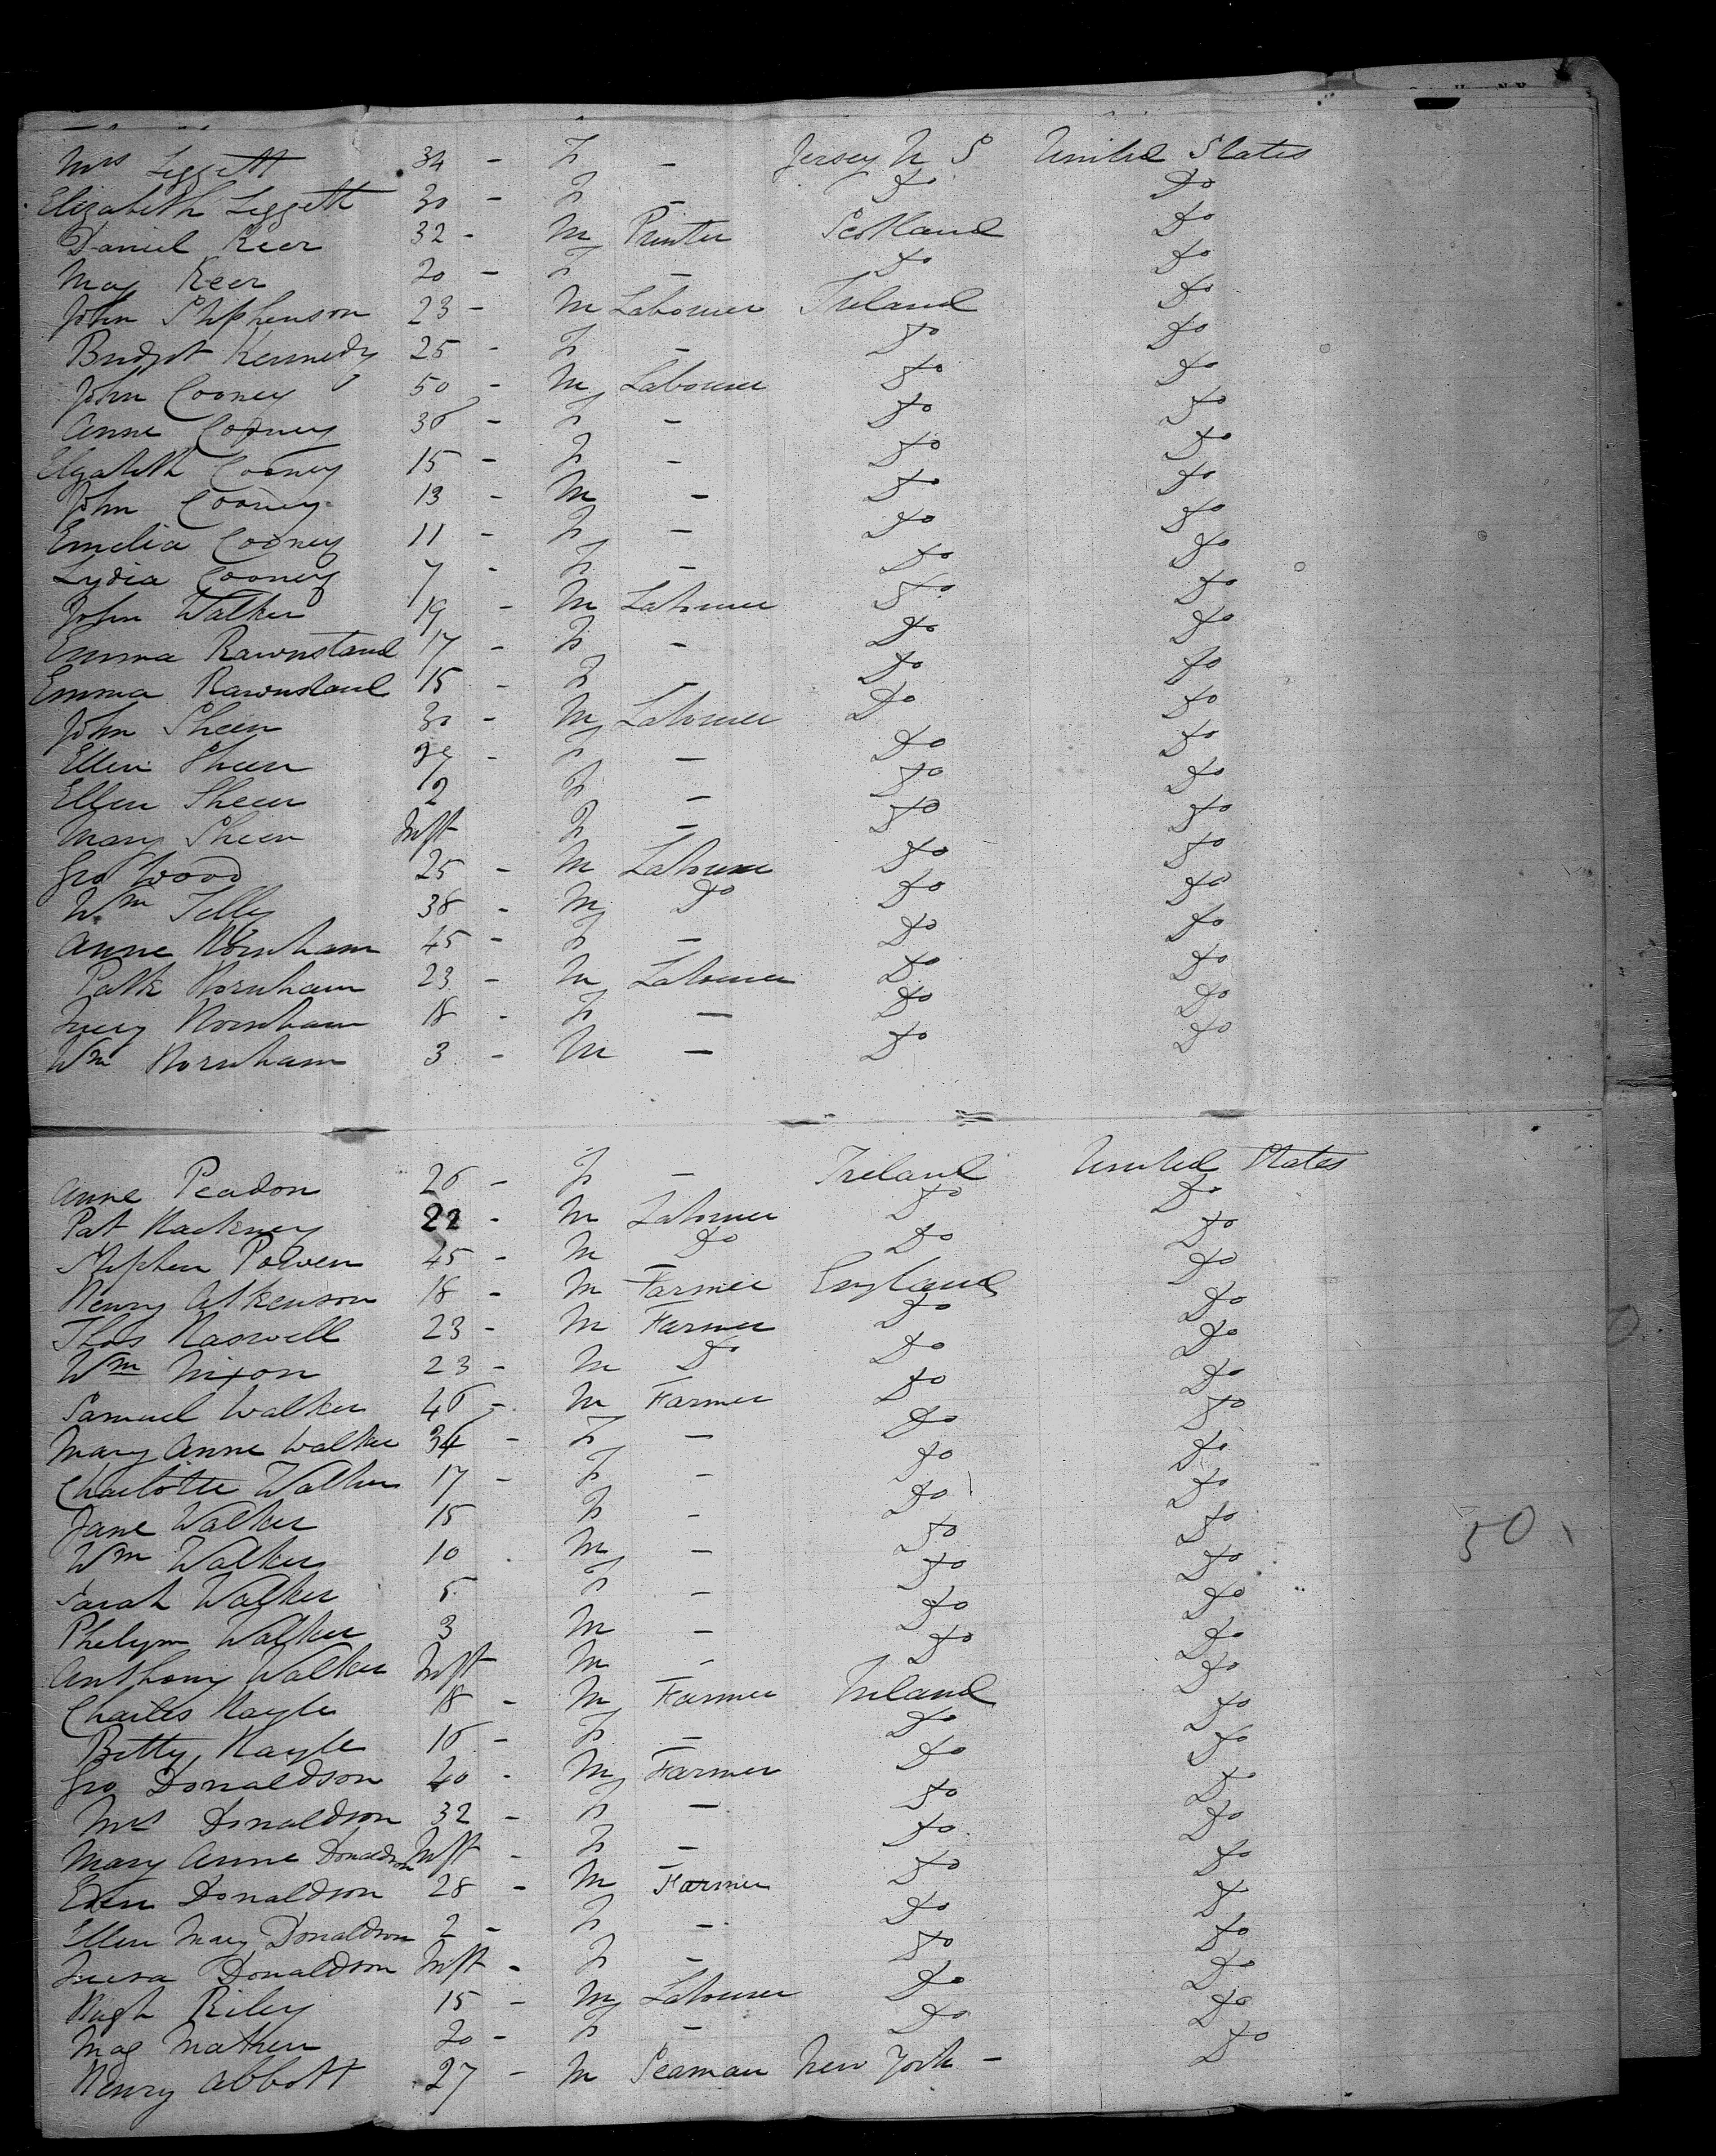 Mrs Leggett 34 - F - Jersey U S United States
Elizabeth Leggett 30 - F - Do Do
Daniel Keer 32 - M Printer Scotland Do
May Keer 20 - F - Do Do
John Stephenson 23 - M Labourer Ireland Do
Bridget Kennedy 25 - F - Do Do
John Cooney 50 - M Labourer Do Do
Anne Cooney 36 - F - Do Do
Elizabeth Cooney 15 - F - Do Do
John Cooney 13 - M - Do Do
Emelia Cooney 11 - F - Do Do
Lydia Cooney 7 - F - Do Do
John Walker 19 - M Labourer Do Do
Emma Rawnstand 17 - F - Do Do
Emma Rawnstand 15 - F - Do Do
John Sheen 30 - M Labourer Do Do
Ellen Sheen - F - Do Do
Ellen Sheen 2 F - Do Do
Mary Sheen Inft F - Do Do
Geo Wood 25 - M Labourer Do Do
Wm Telly 38 - M Do Do Do
Anne Hornham 45 - F - Do Do
Patk Hornham 23 - M Labourer Do Do
Lucy Hornham 18 - F - Do Do
Wm Hornham 3 - M - Do Do
Anne Peadon 26 - F - Ireland United States
Pat Hackney 22 - M Labourer Do Do
Stephen Power 45 - M Do Do Do
Henry Atkenson 18 - M Farmer England Do
Thos Haswell 23 - M Farmer Do Do
Wm Nixon 23 - M Do Do Do
Samuel Walker 46 - M Farmer Do Do
Mary Anne Walker 36 - F - Do Do
Charlotte Walker 17 - F - Do Do
Jane Walker 15 F - Do Do
Wm Walker 10 M - Do Do
Sarah Walker 5 F - Do Do
Phelym Walker 3 M - Do Do
Anthony Walker Inft M - Do Do
Charles Nayle 18 - M Farmer Ireland Do
Betty Nayle 16 - F - Do Do
Geo Donaldson 40 - M Farmer Do Do
Mrs Donaldson 32 - F - Do Do
Mary Anne Donaldson Inft - F - Do Do
Donaldson 28 - M Farmer Do Do
Ellen Mary Donaldson 2 - F - Do Do
Donaldson Inft - F - Do Do
Hugh Riley 15 - M Labourer Do Do
Mag Mathew 20 - F - Do Do
Henry Abbott 27 - M Seaman New York - Do
50